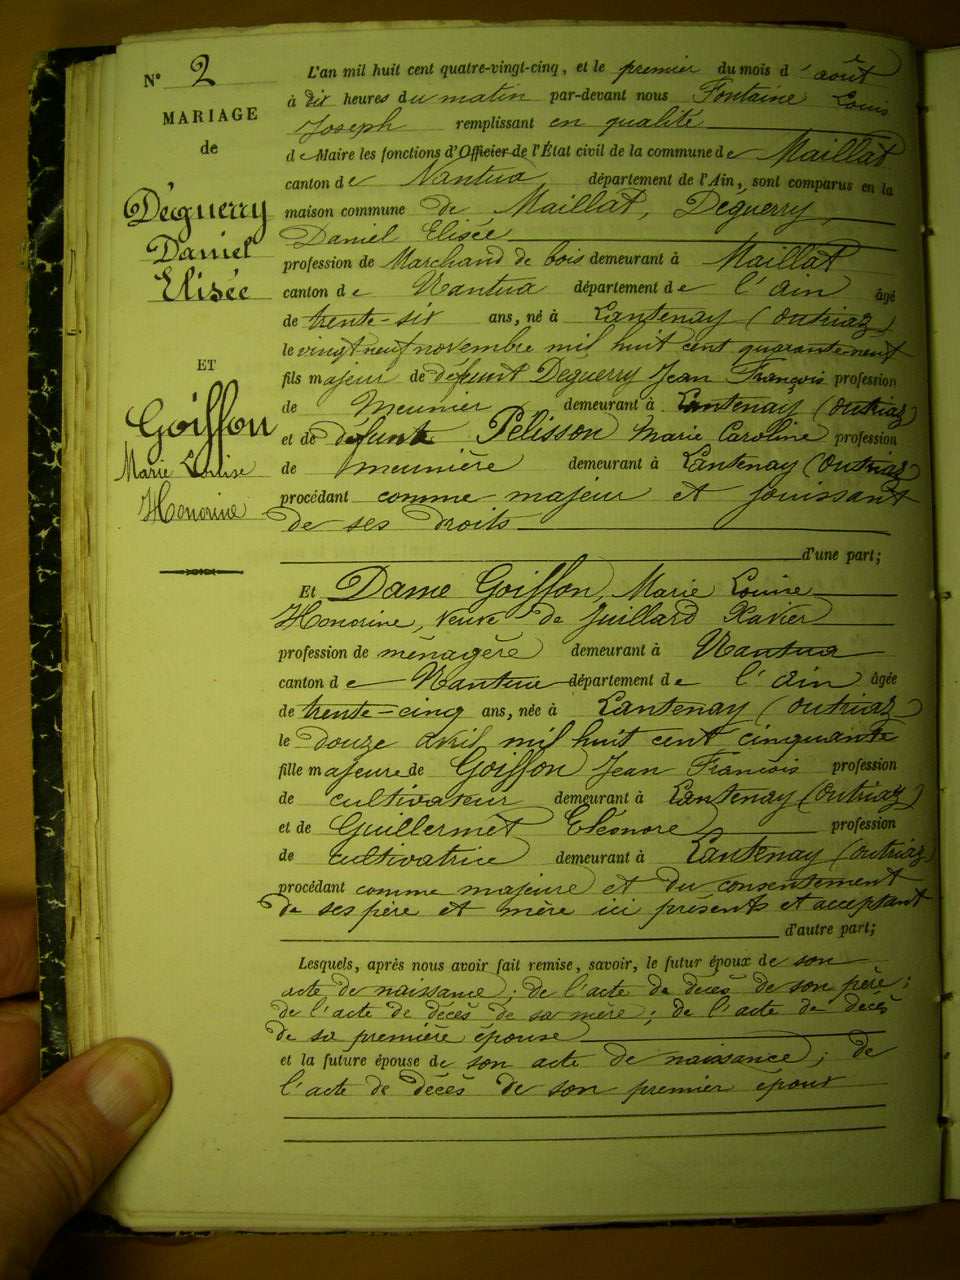 N° 2
MARIAGE
de
Déguerry
Daniel
Elisée
ET
Goiffon
Marie Louise
Honorine
L'an mil huit cent quatre-vingt-cinq, et le premier du mois d'août
à dix heures du matin par-devant nous Fontaine Louis
Joseph remplissant en qualité
de Maire les fonctions d'Officier de l'État civil de la commune de Maillat
canton de Nantua département de l'Ain, sont comparus en la
maison commune de Maillat, Déguerry,
Daniel Elisée
profession de Marchand de bois demeurant à Maillat
canton de Nantua département de l'Ain âgé
de trente-six ans, né à Lantenay (Outriaz)
le vingt neuf novembre mil huit cent quarante-neuf
fils majeur de défunt Déguerry Jean François profession
de Meunier demeurant à Lantenay (Outriaz)
et de défunte Pélisson Marie Caroline profession
de meunière demeurant à Lantenay (Outriaz)
procédant comme majeur et jouissant
de ses droits
d'une part;
Et Dame Goiffon, Marie Louise
Honorine, veuve de Juillard Xavier
profession de ménagère demeurant à Nantua
canton de Nantua département de l'Ain âgée
de trente-cinq ans, née à Lantenay (Outriaz)
le douze avril mil huit cent cinquante
fille majeure de Goiffon Jean François profession
de cultivateur demeurant à Lantenay (Outriaz)
et de Guillermet Eléonore profession
de cultivatrice demeurant à Lantenay (Outriaz)
procédant comme majeure et du consentement
de ses père et mère ici présents et acceptant
d'autre part;
Lesquels, après nous avoir fait remise, savoir, le futur époux de son
acte de naissance; de l'acte de décès de son père;
de l'acte de décès de sa mère; de l'acte de décès
de sa première épouse
et la future épouse de son acte de naissance; de
l'acte de décès de son premier époux